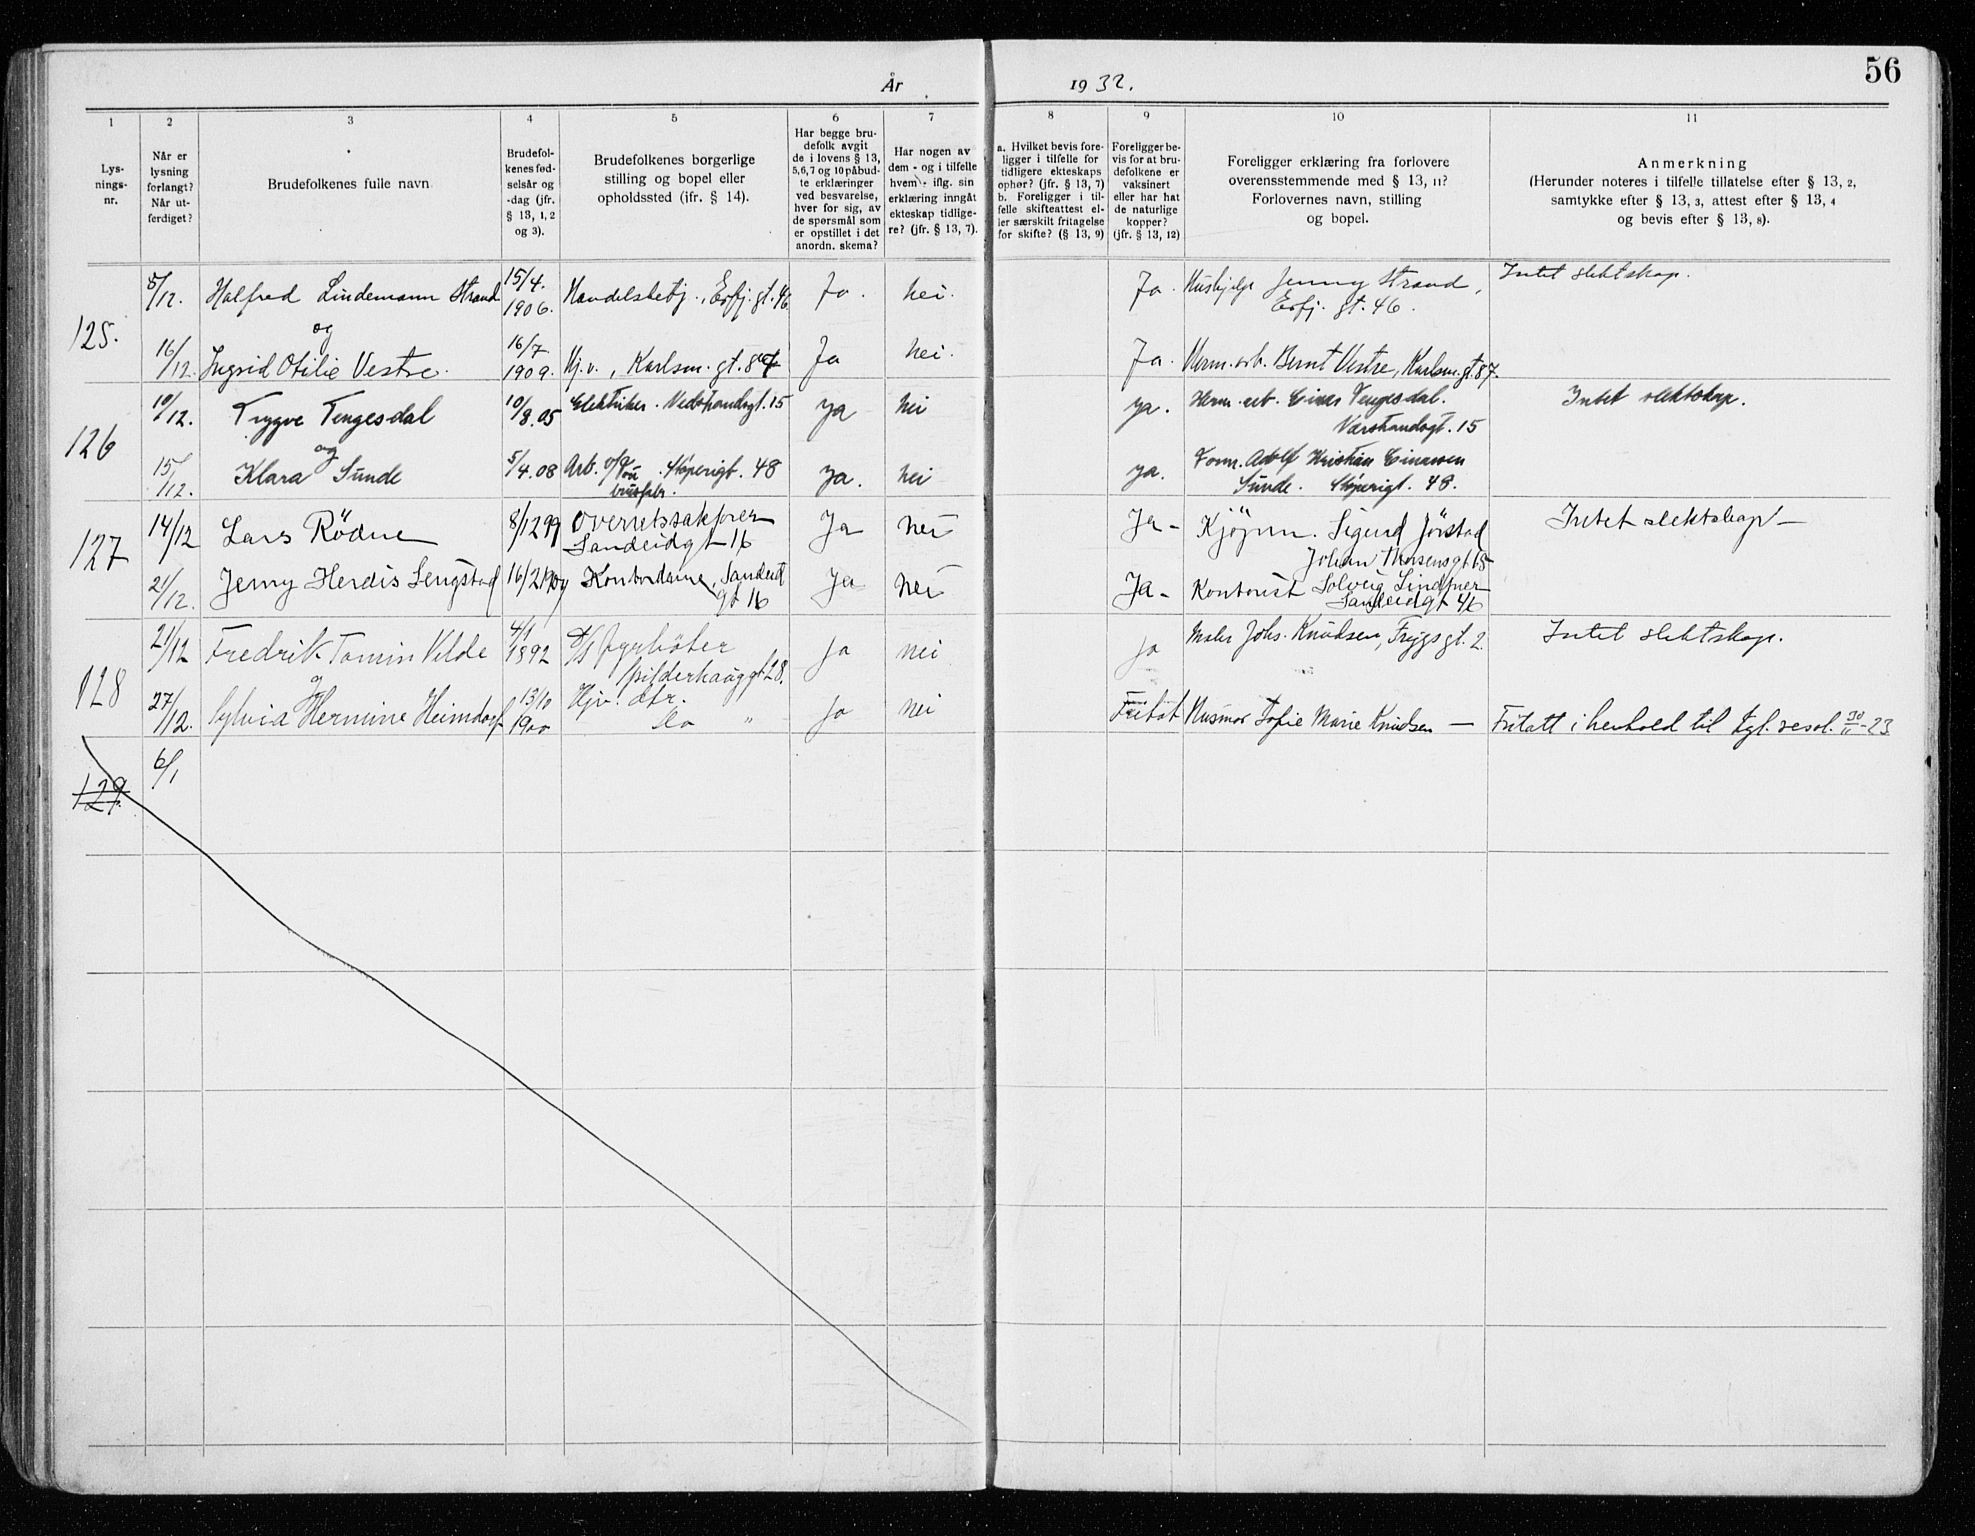 56
År 1932.
1 2 3 4 5 6 7 8 9 10 11
Lys-
nings-
nr.
Når er
lysning
forlangt?
Når ut-
ferdiget?
Brudefolkenes fulle navn
Brudefol-
kenes fød-
selsår og
-dag (jfr.
§ 13, 1, 2
og 3).
Brudefolkenes borgerlige
stilling og bopel eller
opholdssted (jfr. § 14).
Har begge bru-
defolk avgit
de i lovens § 13,
5,6,7 og 10 påbud-
te erklæringer
ved besvarelse,
hver for sig, av
de spørsmål som
er opstillet i det
anordn. skema?
Har nogen av
dem - og i tilfelle
hvem - iflg. sin
erklæring inngåt
ekteskap tidlige-
re? (jfr. § 13, 7).
a. Hvilket bevis fore-
ligger i tilfelle for
tidligere ekteskaps
ophør? (jfr. § 13, 7)
b. Foreligger i til-
felle skifteattest el-
ler særskilt fritagelse
for skifte? (§ 13, 9)
Foreligger be-
vis for at bru-
defolkene er
vaksinert
eller har hat
de naturlige
kopper?
(jfr. § 13, 12)
Foreligger erklæring fra forlovere
overensstemmende med § 13, 11?
Forlovernes navn, stilling
og bopel.
Anmerkning
(Herunder noteres i tilfelle tillatelse efter § 13, 2,
samtykke efter § 13, 3, attest efter § 13, 4
og bevis efter § 13, 8).
125.
8/12. Halfred Lindemann Strand 15/4. 1906. Handelsbetj., Erfj. gt. 46. Ja. nei. Ja. Hushjelp Jenny Strand, Erfj. gt. 46. Intet slektskap.
og
16/12. Ingrid Otilie Vestre. 16/7 1909. Hj.v., Karlsm. gt. 87 Ja nei. Ja. Herm. arb. Bernt Vestre, Karlsm. gt. 87.
126
10/12. Trygve Tengesdal 10/8.05 Elektriker. gt. 15 ya nei ya. Herm. arb. Einar Tengesdal. gt. 15 Intet slektskap.
og
15/12. Klara Sunde 5/4.08 Arb. Støperigt. 48 ya. nei ya. Form. Adolf Kristian Einarsen Sunde. Støperigt. 48.
127
14/12 Lars Rödne 8/12 99 Overretssakfører Sandeidgt 16 Ja nei Ja - Kjøpm. Sigurd Jörstad Johan Thorsensgt 15 Intet slektskap -
21/12. Jenny Herdis Sengstad 16/2 1909 Kontordame, Sandeidgt 16 Ja nei Ja - Kontorist Solveig Lindtner Sandeidgt 46
128
21/12 Fredrik Tomin Velde 4/1 1892 D/S Fyrböter gt 28. Ja nei Ja Maler Johs. Knudsen, Tryggs gt. 2. Intet slektskap.
og
27/12. Sylvia Hermine Heimdorf 13/10 1900 Hjv. dtr. do " Ja nei Fritat Husmor Sofie Marie Knudsen — Fritatt i henhold til kgl. resol. 30/11-23
129. 6/1